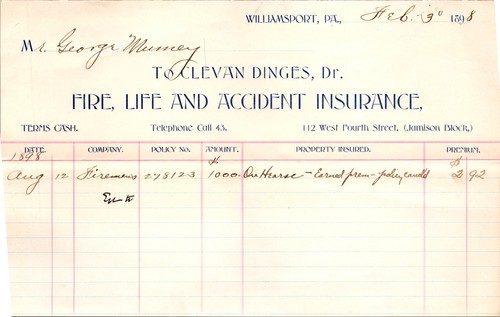 WILLIAMSPORT, PA., Feb. 3° 1898
Mr. George Mumey
To CLEVAN DINGES, Dr.
FIRE, LIFE AND ACCIDENT INSURANCE,
TERMS CASH. Telephone Call 43. 112 West Fourth Street, (Jamison Block,)
DATE. COMPANY. POLICY No. AMOUNT. PROPERTY INSURED. PREMIUM.
1898 $ $
Aug 12 Firemens 278123 1000. On Hearse - Earned prem - policy canclld 2 92